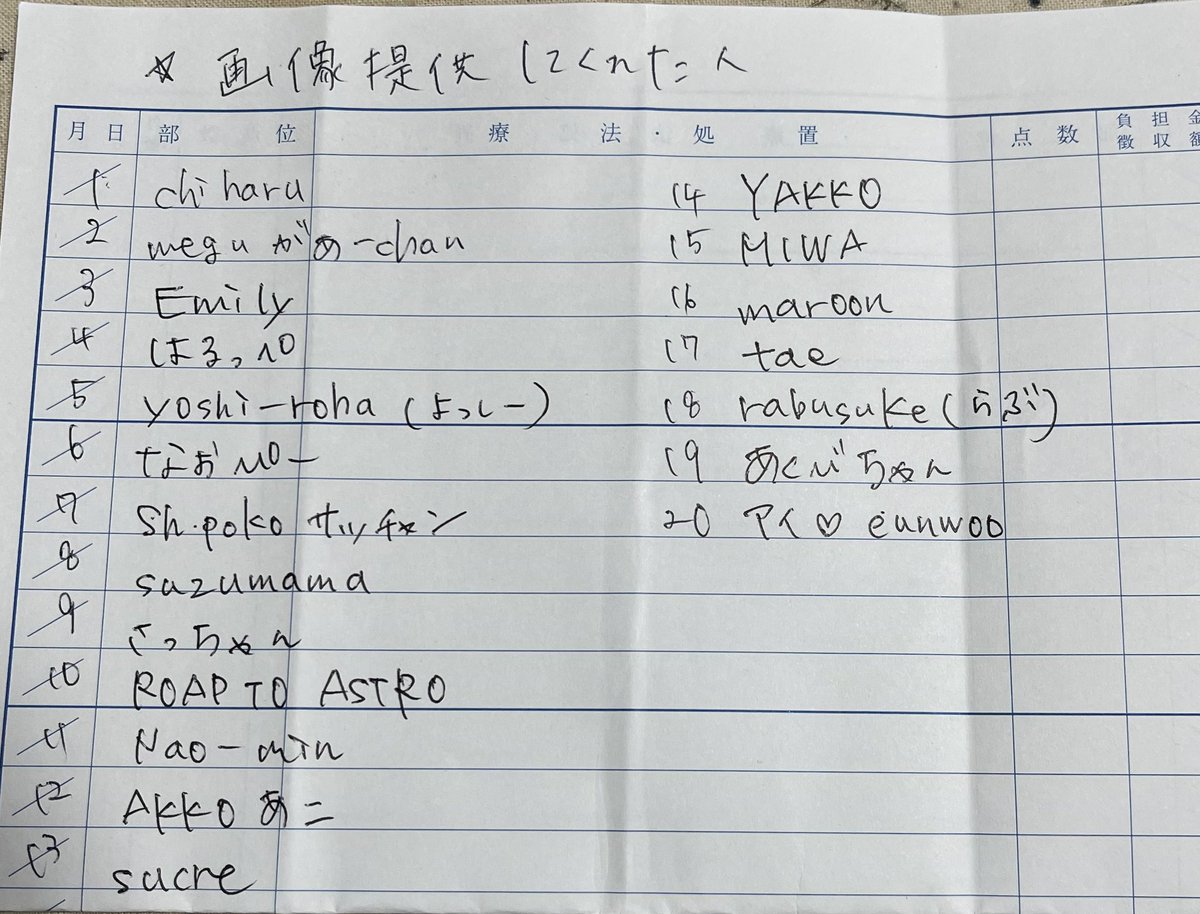 ☆ 画像提供してくれた人
月日 部位 療法・処置 点数 負担金 徴収額
1 chiharu
2 megu がぁーchan
3 Emily
4 はるっぺ
5 yoshi-roha (よっしー)
6 なおぺー
7 Sh.poko サッチャン
8 suzumama
9 さっちゃん
10 ROAP TO ASTRO
11 Nao-min
12 AKKO あこ
13 sucre
14 YAKKO
15 MIWA
16 maroon
17 tae
18 rabusuke (らぶ)
19 あくびちゃん
20 アイ♡ eunwoo